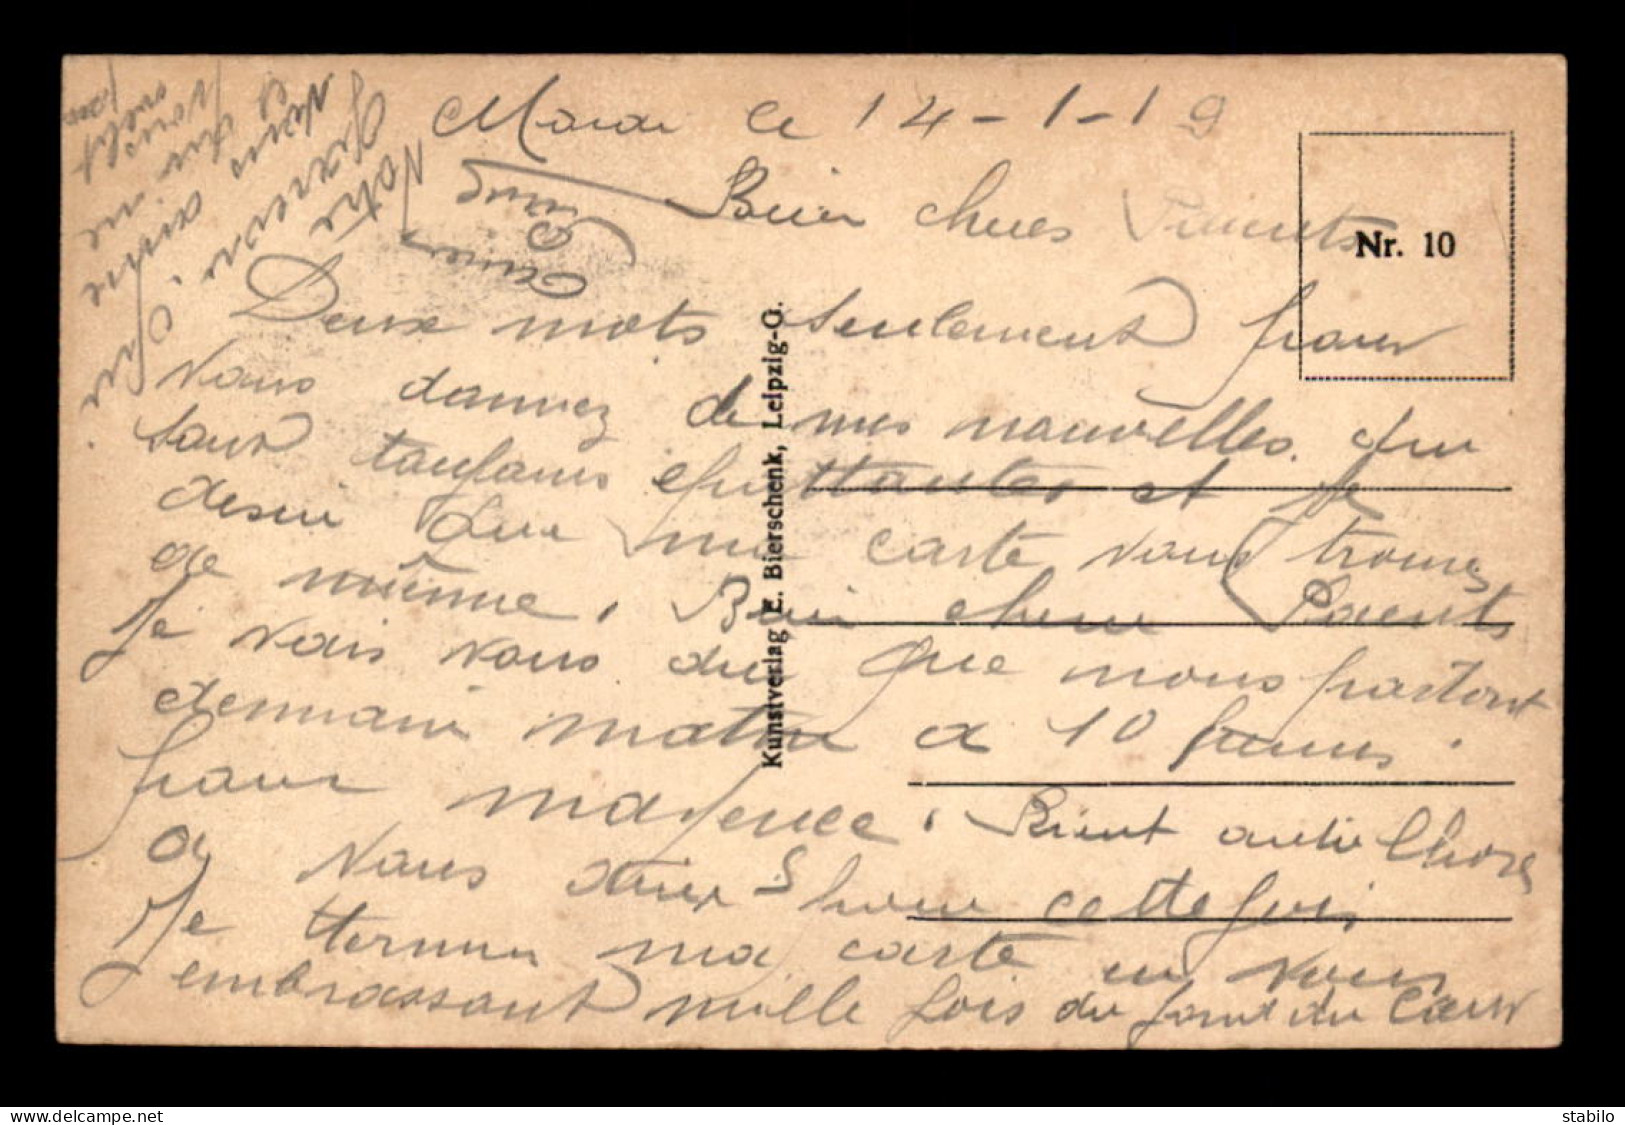 Mardi le 14-1-19
Bien chers Parents
Deux mots seulement pour
vous donnez de mes nouvelles. qui
sont toujours épattantes et je
desir que ma carte vous trouves
de mième. Bien chers Parents
Je vais vous dir que nous partont
demain matin a 10 heures
pour mayence. Rient autre Chose
a vous dire pour cette fois
Je ttermine ma carte en vous
embrassant mille fois du font du Cœur
Notre
et
aime
Kunstverlag E. Bierschenk, Leipzig-O.
Nr. 10
stabilo